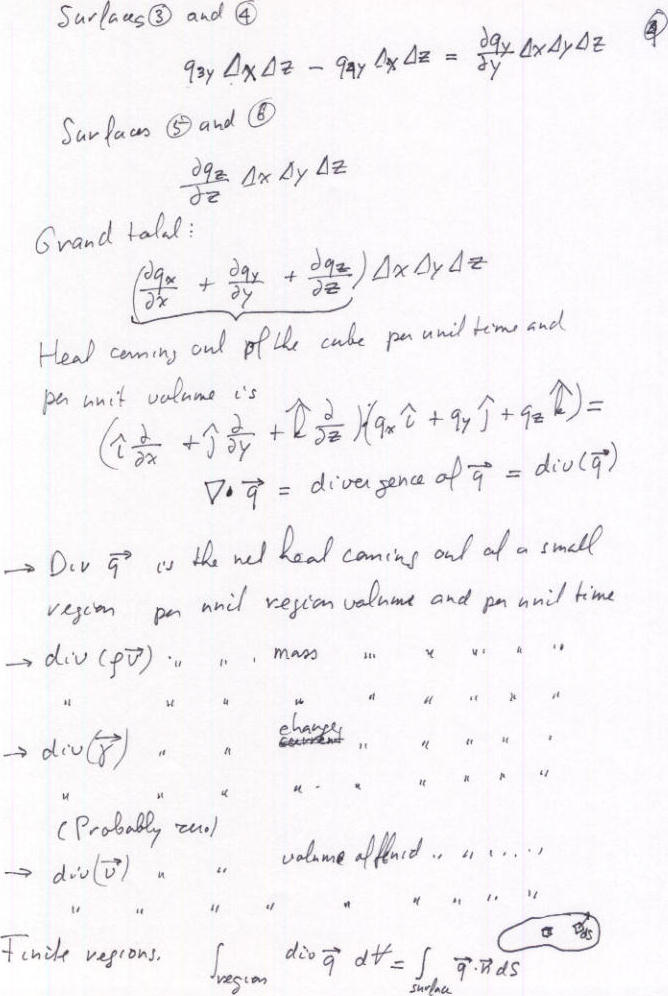 Surfaces ③ and ④
q₃y Δx Δz − q₄y Δx Δz = ∂qy/∂y Δx Δy Δz
Surfaces ⑤ and ⑥
∂qz/∂z Δx Δy Δz
Grand total:
(∂qx/∂x + ∂qy/∂y + ∂qz/∂z) Δx Δy Δz
Heat coming out of the cube per unit time and
per unit volume is
(î ∂/∂x + ĵ ∂/∂y + k̂ ∂/∂z)·(qx î + qy ĵ + qz k̂) =
∇• q⃗ = divergence of q⃗ = div(q⃗)
→ Div q⃗ is the net heat coming out of a small
region per unit region volume and per unit time
→ div (ρv⃗) " " " mass " " " " "
" " " " " " " " "
→ div(γ⃗) " " charge " " " " "
" " " " " " " " "
(Probably zero)
→ div(v⃗) " " volume of fluid " " " " "
" " " " " " " " "
Finite regions. ∫region div q⃗ dV = ∫surface q⃗·n⃗ dS
dS